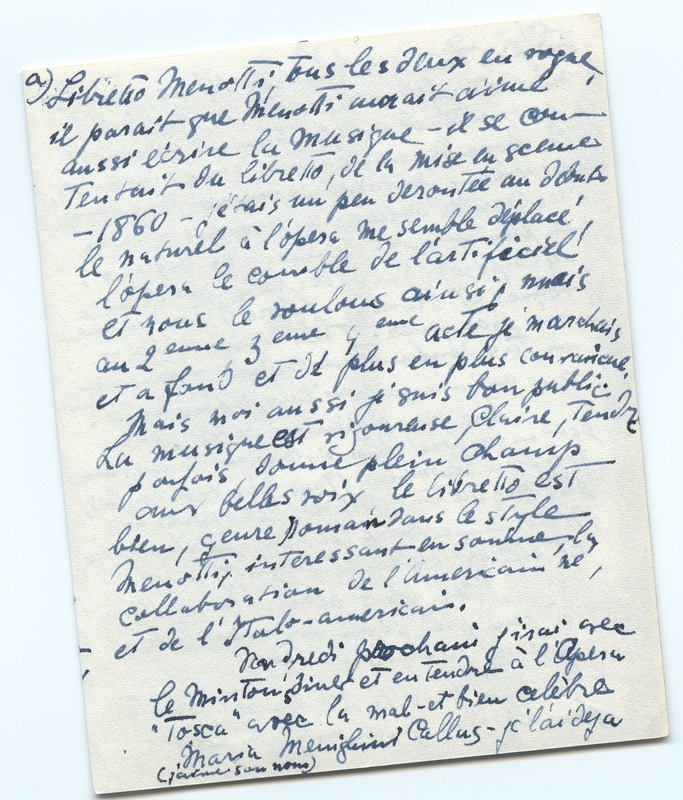 a) Libretto Menotti, tous les deux en vogue,
il parait que Menotti aurait aimé
aussi écrire la musique – il se con-
tentait du libretto, de la mise en scene
– 1860 – j'étais un peu deroutée au debut
le naturel à l'opera me semble déplacé,
l'opera le comble de l'artificiel
et nous le voulons ainsi, mais
au 2 eme 3 eme 4 eme acte je marchais
et a fond et de plus en plus convaincue.
Mais moi aussi je suis bon public.
La musique est rigoureuse, claire, tendre
parfois, donne plein champ
aux belles voix le libretto est
bien, genre roman dans le style
Menotti, interessant en somme, la
collaboration de l'Americain né,
et de l'Italo-americain.
Vendredi prochain j'irai avec
le Minton, diner et entendre à l'Opera
"Tosca" avec la mal-et bien celèbre
Maria Menighini Callas – je l'ai deja
(j'aime son nom)